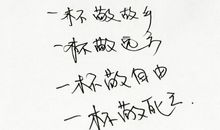 一杯敬故乡
一杯敬远方
一杯敬自由
一杯敬死亡.